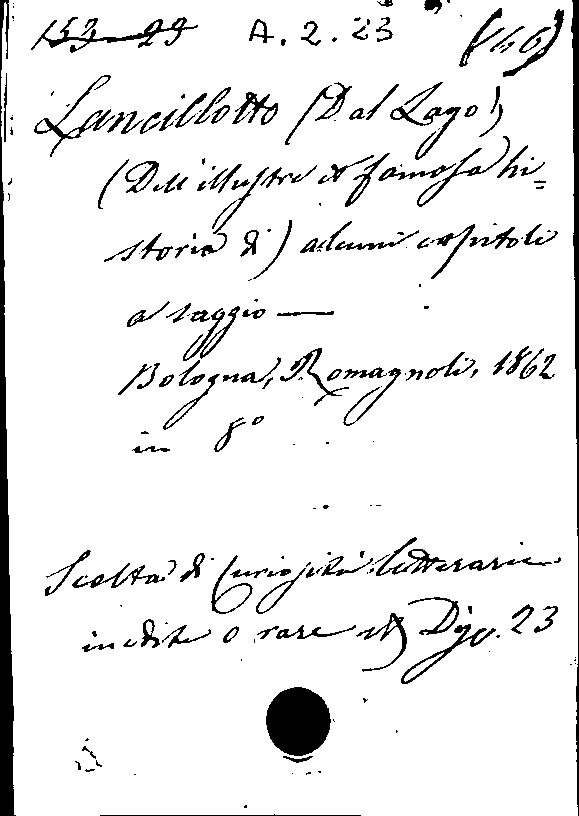 153-23 A.2.23 (46)
Lancillotto (Dal Lago)
(Dell'illustre et famosa hi=
storia di) alcuni capitoli
a saggio —
Bologna, Romagnoli, 1862
in 8º
Scelta di curiosità letterarie
inedite o rare Disp. 23